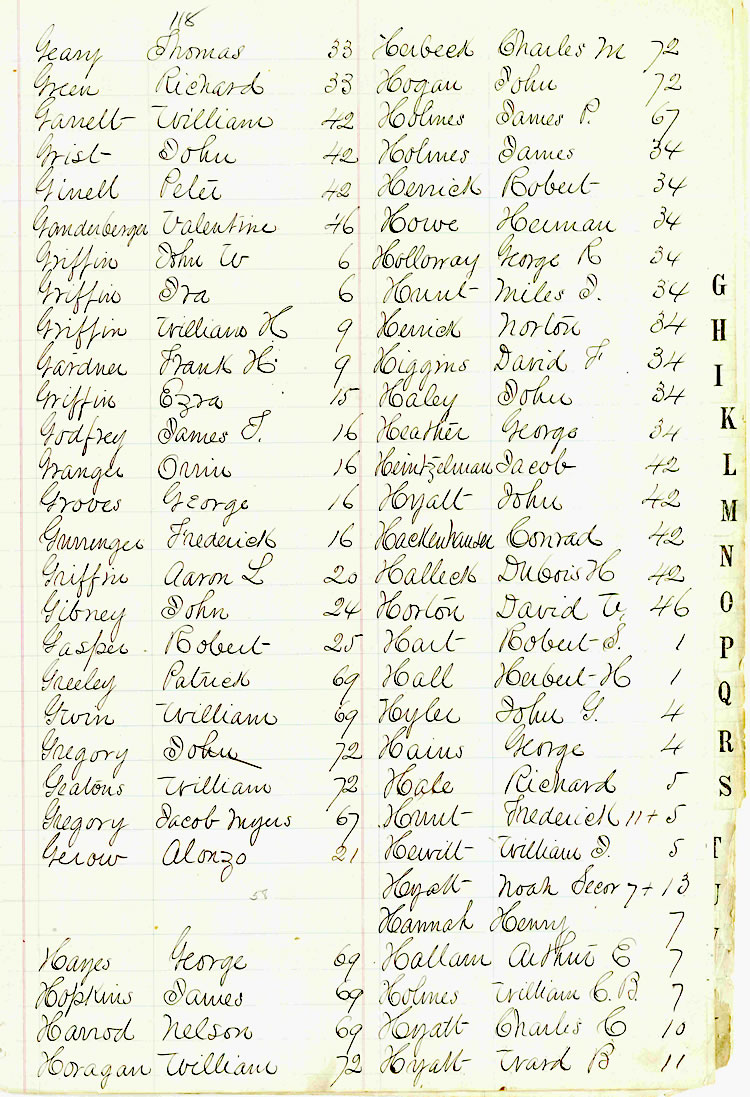 118
Geary Thomas 33
Green Richard 33
Garrett William 42
Grist John 42
Ginell Peter 42
Ganderberger Valentine 46
Griffin John W 6
Griffin Ira 6
Griffin William H 9
Gardner Frank H. 9
Griffin Ezra 15
Godfrey James T. 16
Granger Orrin 16
Groves George 16
Gurringer Frederick 16
Griffin Aaron L 20
Gibney John 24
Gasper Robert 25
Greeley Patrick 69
Gwin William 69
Gregory John 72
Geatons William 72
Gregory Jacob Myers 67
Gerow Alonzo 21
Hayes George 69
Hopkins James 69
Harrod Nelson 69
Horagan William 72
Herbeck Charles M 72
Hogan John 72
Holmes James P. 67
Holmes James 34
Herrick Robert 34
Howe Herman 34
Holloway George R 34
Hunt Miles J. 34
Herrick Norton 34
Higgins David F 34
Haley John 34
Heather George 34
Heintzelman Jacob 42
Hyatt John 42
Hackenhauser Conrad 42
Halleck DuBois H 42
Horton David W. 46
Hart Robert S. 1
Hall Herbert H 1
Hyler John G. 4
Hains George 4
Hale Richard 5
Hunt Frederick 11+5
Hewitt William J. 5
Hyatt Noah Secor 7+13
Hannah Henry 7
Hallam Arthur E 7
Holmes William C. B. 7
Hyatt Charles C 10
Hyatt Ward B 11
G
H
I
K
L
M
N
O
P
Q
R
S
T